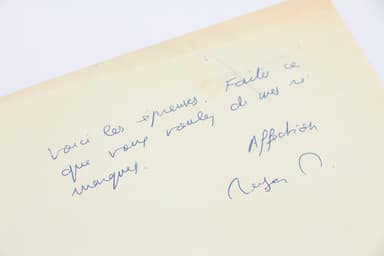 Voici les épreuves. Faites ce
que vous voulez de mes re
marques.
Affection